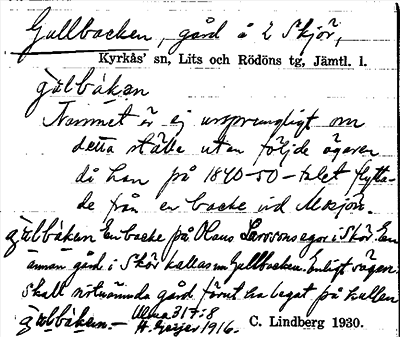 Gullbacken, gård å 2 Skjör,
Kyrkås' sn, Lits och Rödöns tg, Jämtl. l.
gülbákan
Namnet är ej ursprungligt om
detta ställe utan följde ägaren
då han på 1840-50-talet flytta-
de från en backe vid
gülbáken En backe på Olaus Larssons egor i Skör. En
annan gård i Skör kallas nu Gullbacken. Enligt sägen
skall nämnda gård förut ha legat på kullen
gülbáken. —
H. Geijer 1916. C. Lindberg 1930.